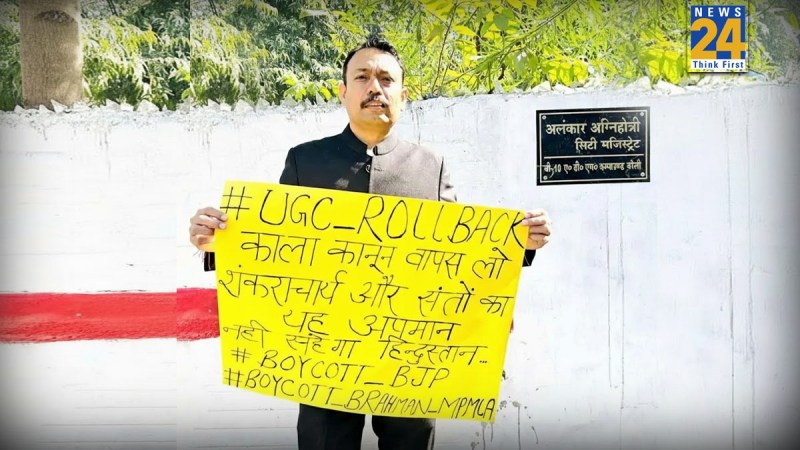 NEWS
24
Think First
अलंकार अग्निहोत्री
सिटी मजिस्ट्रेट
ए० डी० एम० कम्पाउण्ड
#UGC_ROLLBACK
काला कानून वापस लो
शंकराचार्य और संतों का
यह अपमान
नहीं सहेगा हिन्दुस्तान...
#BOYCOTT_BJP
#BOYCOTT_BRAHMAN_MPMLA